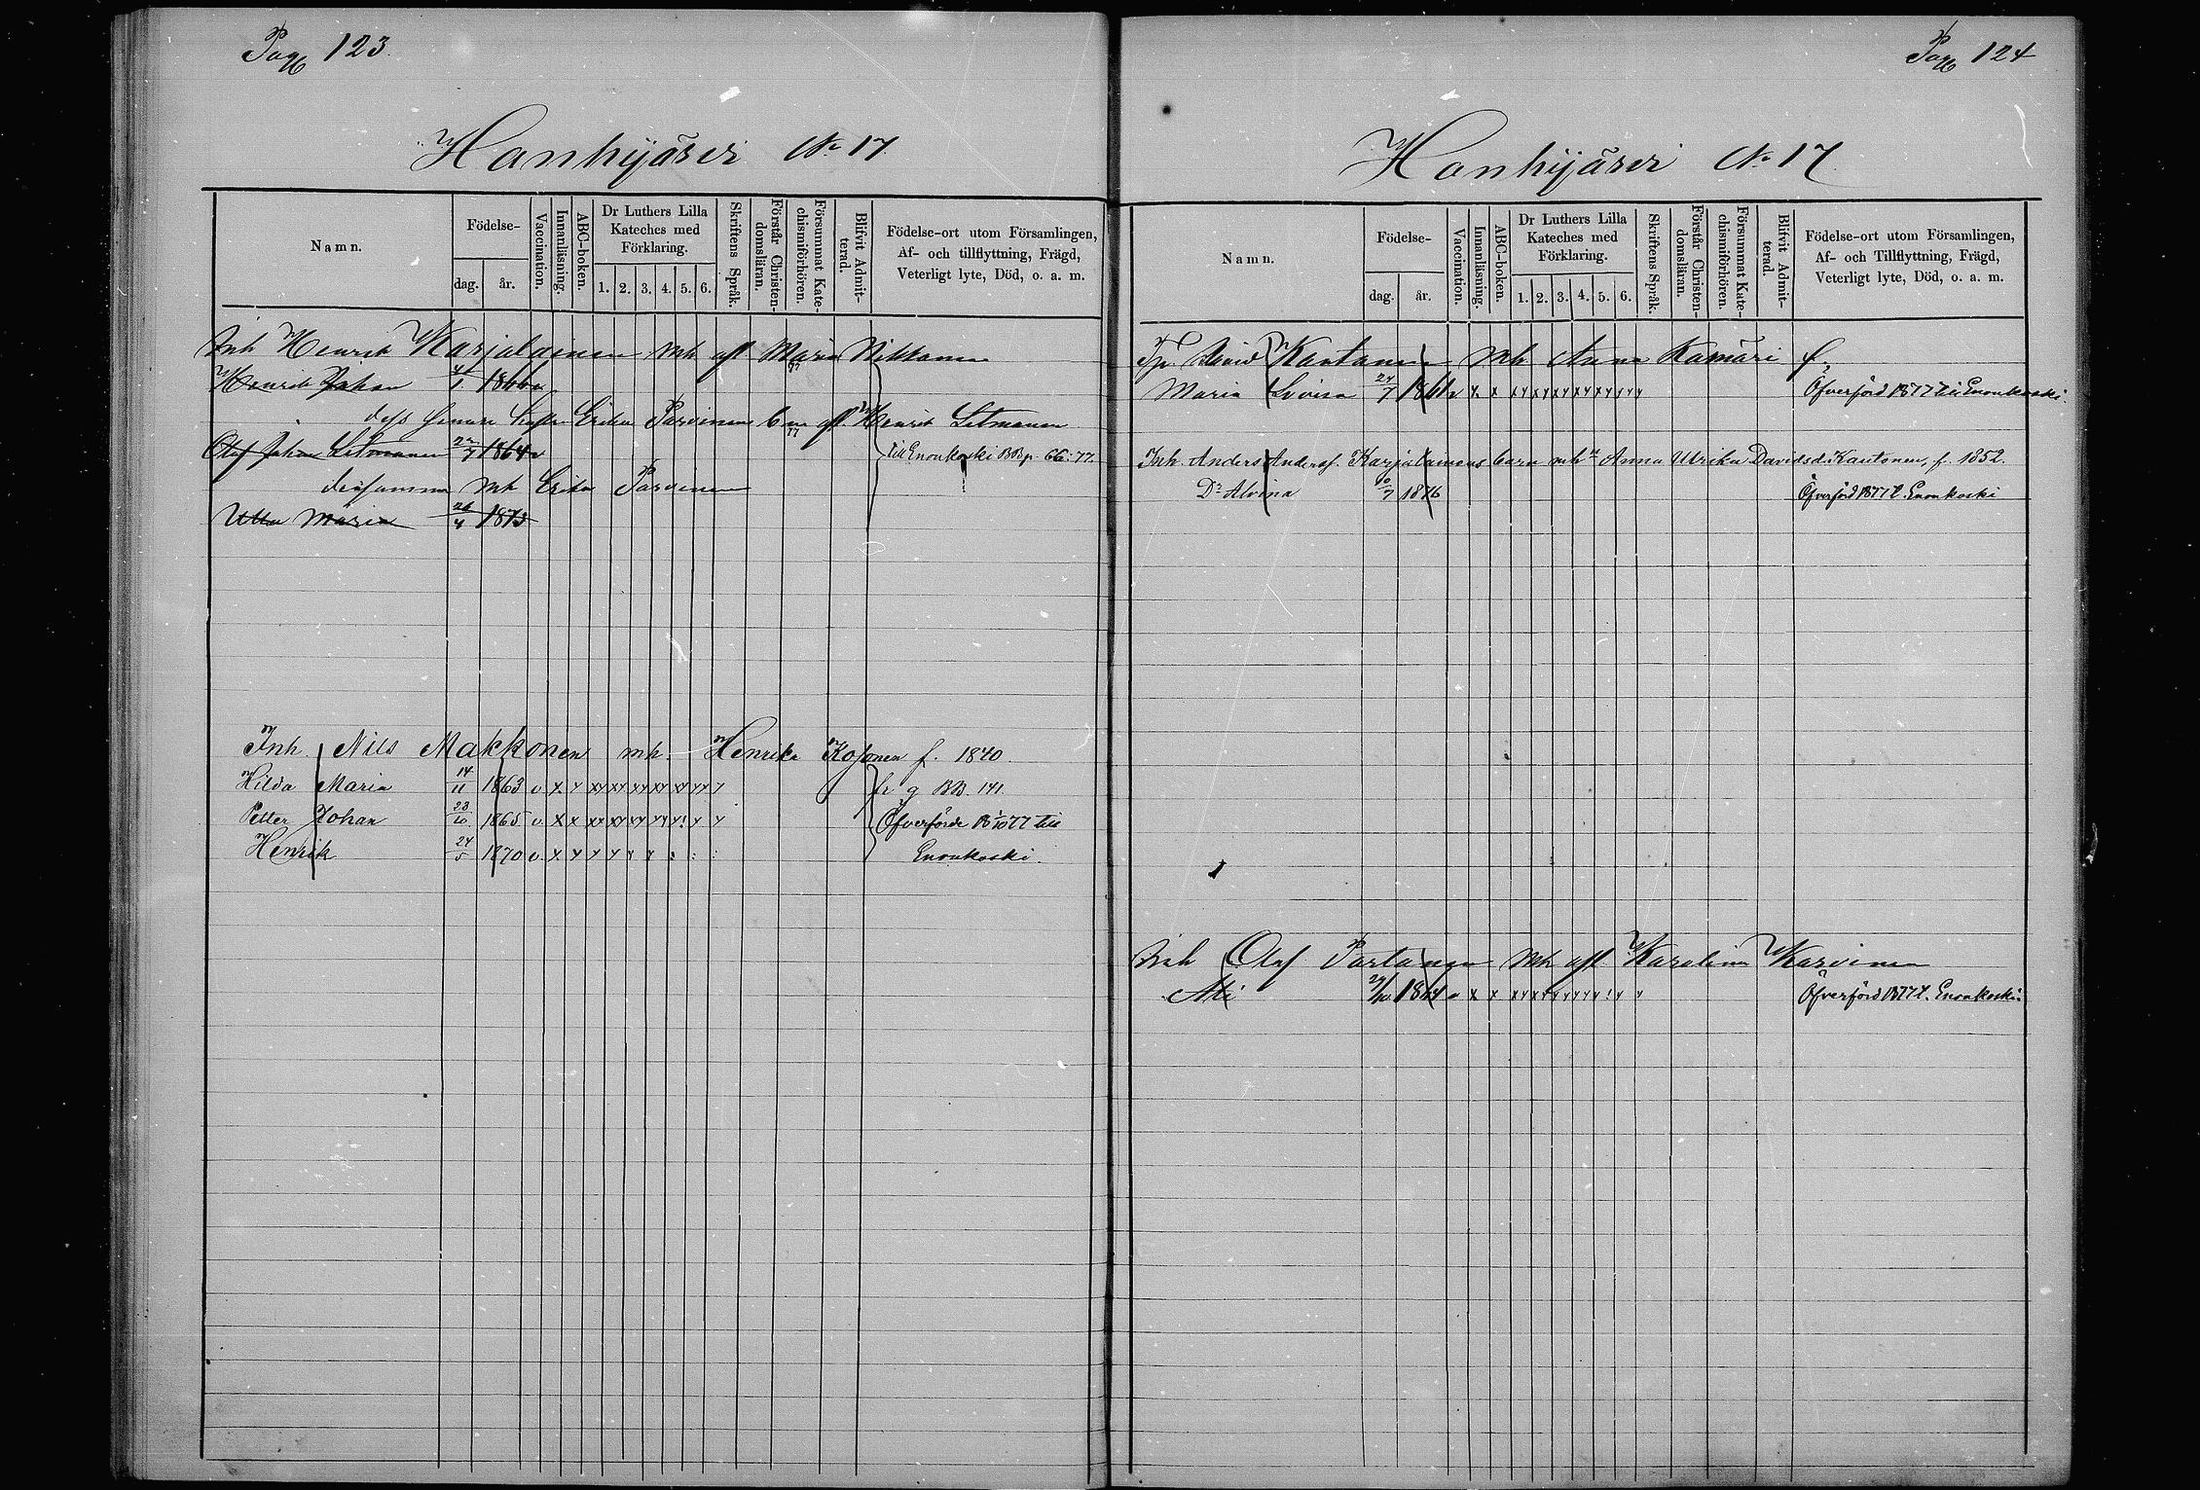 Pag 123.
Hanhijärvi No 17.
Namn.
Födelse-
dag.
år.
Vaccination.
Innanläsning.
ABC-boken.
Dr Luthers Lilla
Kateches med
Förklaring.
1. 2. 3. 4. 5. 6.
Skriftens Språk.
Förstår Christen-
domsläran.
Försummat Kate-
chismiförhören.
Blifvit Admit-
terad.
Födelse-ort utom Församlingen,
Af- och tillflyttning, Frägd,
Veterligt lyte, Död, o. a. m.
Inh Henrik Karjalainen mh afl Maria Nikkanen
Henrik Johan 1866 v
dess Erika Parvinen afl. Henrik Litmanen
Olof Johan Litmanen 22/7 1864 v till Enonkoski BB p. 66. 77.
densamma mh Erika Parvinen
Ulla Maria 26/4 1873
Inh. Nils Makkonen mh. Henrika Kosonen f. 1840.
Hilda Maria 14/11 1863 v x y xy xy xy xy xy yy y fr g BB. 141.
Petter Johan 23/10 1865 v. x x xx xy xy yy y! y y Öfverförde 18 1/10 77 till
Henrik 24/5 1870 v. x y y y y y : : : Enonkoski.
Pag 124
Hanhijärvi No 17.
Namn.
Födelse-
dag.
år.
Vaccination.
Innanläsning.
ABC-boken.
Dr Luthers Lilla
Kateches med
Förklaring.
1. 2. 3. 4. 5. 6.
Skriftens Språk.
Förstår Christen-
domsläran.
Försummat Kate-
chismiförhören.
Blifvit Admit-
terad.
Födelse-ort utom Församlingen,
Af- och Tillflyttning, Frägd,
Veterligt lyte, Död, o. a. m.
David Kautanen mh Anna Kamäri
Maria Lovisa 24/7 1861 v x x xy xy xy xy xy yy y Öfverförd 1877 till Enonkoski.
Inh. Anders Andersf. Karjalainens barn mh Anna Ulrika Davidsd. Kautonen, f. 1852.
Dr Alvina 10/7 1876 Öfverförd 1877 t. Enonkoski
Inh Olof Partanen mh afl Karolina Karvinen
29/10 1864 v x x xy xy yy yy y! y y Öfverförd 1877 t. Enonkoski.